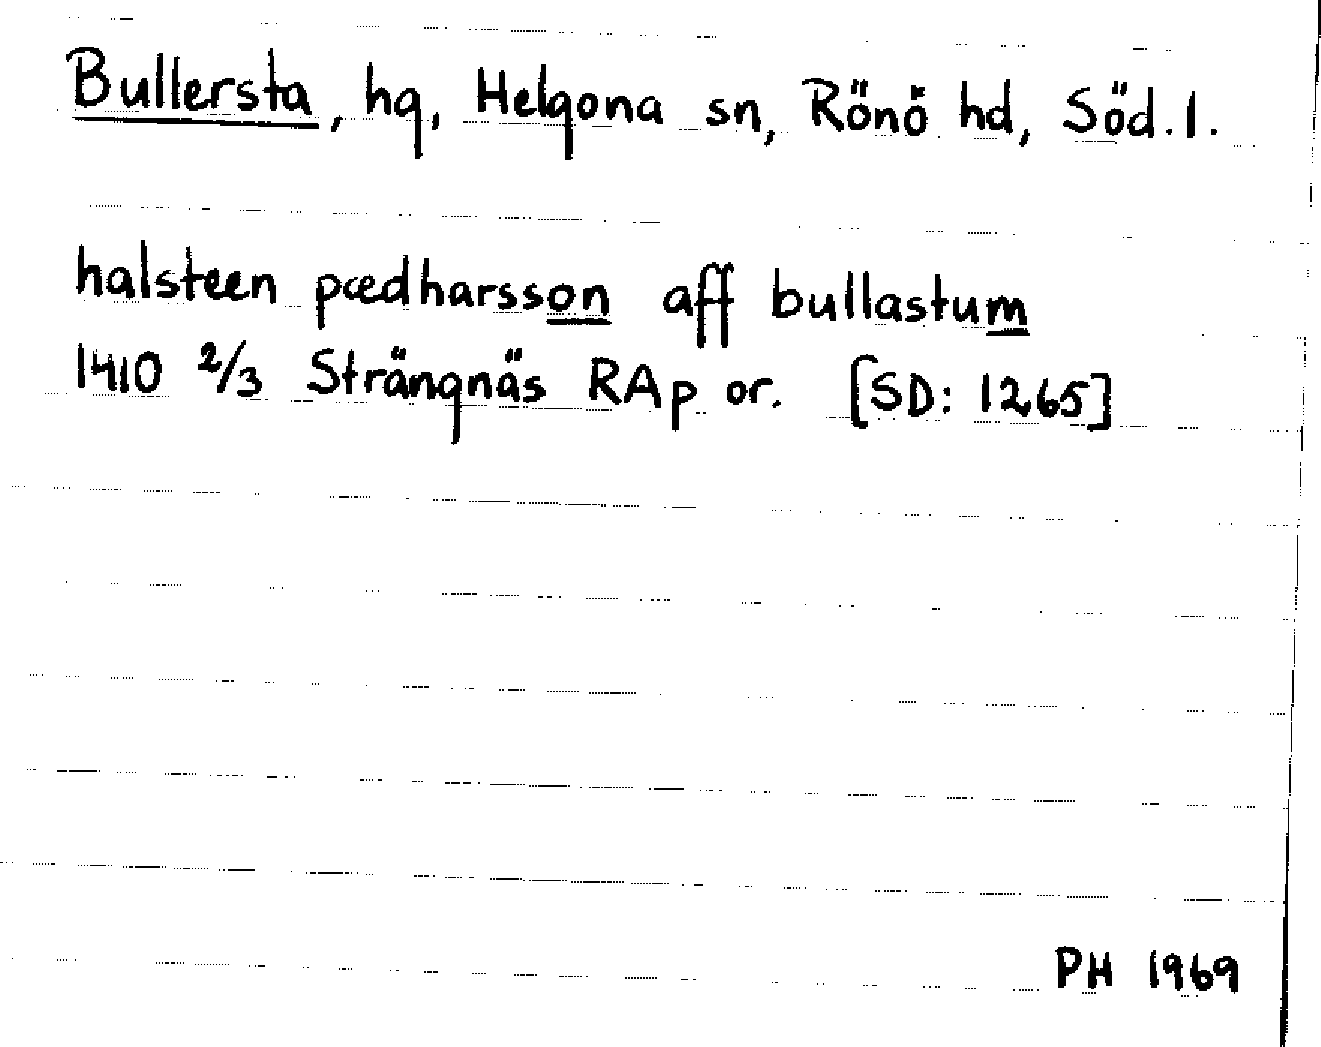 Bullersta, hg, Helgona sn, Rönö hd, Söd.l.
halsteen pædharsson aff bullastum
1410 2/3 Strängnäs RAp or. [SD: 1265]
PH 1969